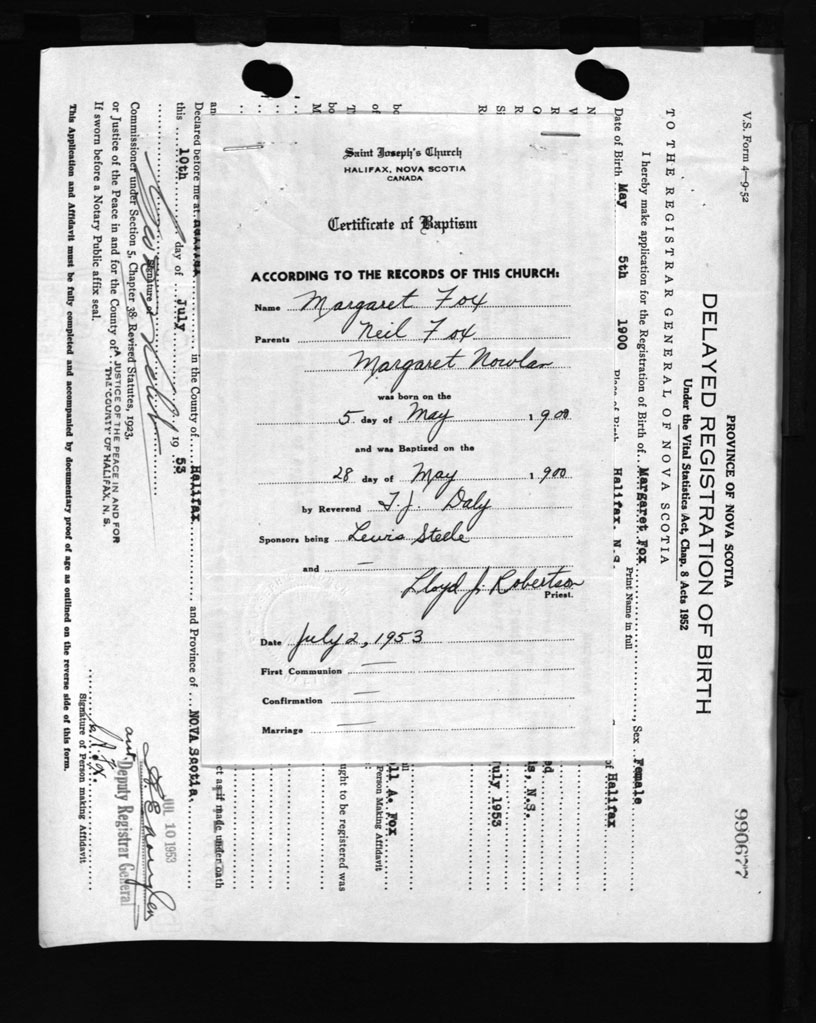 Saint Joseph's Church
HALIFAX, NOVA SCOTIA
CANADA
Certificate of Baptism
ACCORDING TO THE RECORDS OF THIS CHURCH:
Name Margaret Fox
Parents Neil Fox
Margaret Nowlan
was born on the
5 day of May 1900
and was Baptized on the
28 day of May 1900
by Reverend T. J. Daly
Sponsors being Lewis Steele
and —
Lloyd J. Robertson
Priest.
Date July 2, 1953
First Communion —
Confirmation —
Marriage —
V.S. Form 4—9-52
PROVINCE OF NOVA SCOTIA
DELAYED REGISTRATION OF BIRTH
Under the Vital Statistics Act, Chap. 8 Acts 1952
990677
TO THE REGISTRAR GENERAL OF NOVA SCOTIA
I hereby make application for the Registration of Birth of Margaret Fox, Sex Female
Print Name in full
Date of Birth May 5th 1900 Place of Birth Halifax, N.S. of Halifax
N
W
O
R
SI
R
ed
ls, N.S.
July 1953
bo
of
T
bo
M
ll A. Fox
Person Making Affidavit
ught to be registered was
an
ct as if made under oath
Declared before me at in the County of Halifax and Province of NOVA Scotia.
this 10th day of July 1953
Signature of
Commissioner under Section 5, Chapter 38 Revised Statutes, 1923,
or Justice of the Peace in and for the County of
A JUSTICE OF THE PEACE IN AND FOR
THE COUNTY OF HALIFAX, N. S.
If sworn before a Notary Public affix seal.
JUL 10 1953
Deputy Registrar General
Signature of Person making Affidavit
This Application and Affidavit must be fully completed and accompanied by documentary proof of age as outlined on the reverse side of this form.